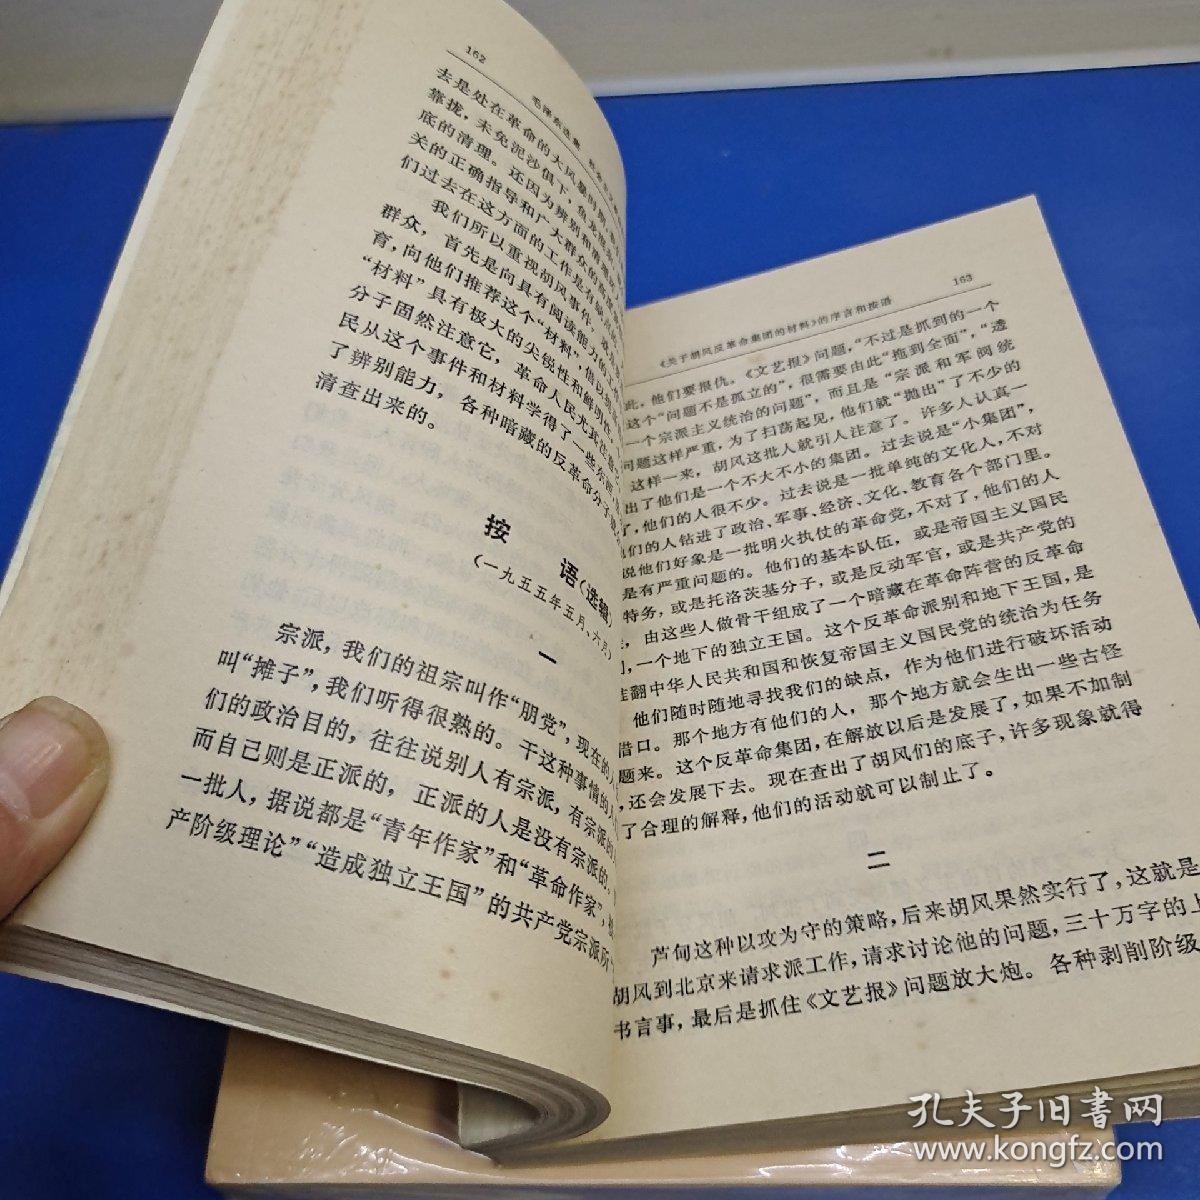 162
毛泽东选集
去是处在革命的大风暴时期
靠拢，未免泥沙俱下，鱼龙混
底的清理。还因为辨别和清理
关的正确指导和广大群众的高度
们过去在这方面的工作是有缺点
我们所以重视胡风事件，就是
群众，首先是向具有阅读能力的工
育，向他们推荐这个“材料”，借以提
“材料”具有极大的尖锐性和鲜明性，
分子固然注意它，革命人民尤其注意
民从这个事件和材料学得了一些东西，
了辨别能力，各种暗藏的反革命分子就
清查出来的。
按 语（选辑）
（一九五五年五月、六月）
一
宗派，我们的祖宗叫作“朋党”，现在的人
叫“摊子”，我们听得很熟的。干这种事情的人
们的政治目的，往往说别人有宗派，有宗派的
而自己则是正派的，正派的人是没有宗派的。
一批人，据说都是“青年作家”和“革命作家”，
产阶级理论”“造成独立王国”的共产党宗派所“
163
《关于胡风反革命集团的材料》的序言和按语
此，他们要报仇。《文艺报》问题，“不过是抓到的一个
这个“问题不是孤立的”，很需要由此“拖到全面”，“透
一个宗派主义统治的问题”，而且是“宗派和军阀统
问题这样严重，为了扫荡起见，他们就“抛出”了不少的
这样一来，胡风这批人就引人注意了。许多人认真一
出了他们是一个不大不小的集团。过去说是“小集团”，
了，他们的人很不少。过去说是一批单纯的文化人，不对
他们的人钻进了政治、军事、经济、文化、教育各个部门里。
说他们好象是一批明火执仗的革命党，不对了，他们的人
是有严重问题的。他们的基本队伍，或是帝国主义国民
特务，或是托洛茨基分子，或是反动军官，或是共产党的
，由这些人做骨干组成了一个暗藏在革命阵营的反革命
，一个地下的独立王国。这个反革命派别和地下王国，是
推翻中华人民共和国和恢复帝国主义国民党的统治为任务
他们随时随地寻找我们的缺点，作为他们进行破坏活动
借口。那个地方有他们的人，那个地方就会生出一些古怪
题来。这个反革命集团，在解放以后是发展了，如果不加制
，还会发展下去。现在查出了胡风们的底子，许多现象就得
了合理的解释，他们的活动就可以制止了。
二
芦甸这种以攻为守的策略，后来胡风果然实行了，这就是
胡风到北京来请求派工作，请求讨论他的问题，三十万字的上
书言事，最后是抓住《文艺报》问题放大炮。各种剥削阶级
孔夫子旧书网
www.kongfz.com